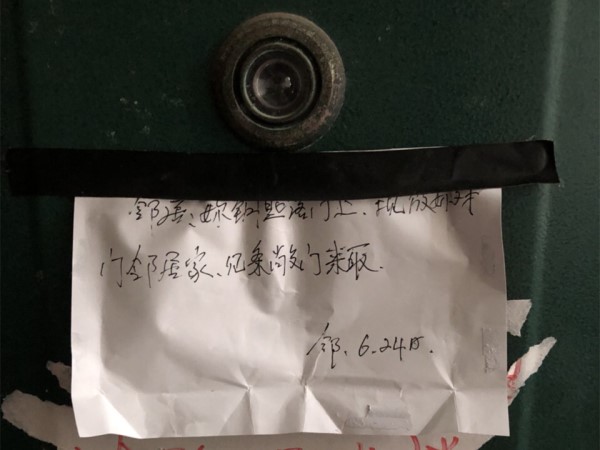 邻居、你钥匙落门上、现放你对
门邻居家、见条敲门来取.
邻、6.24日.